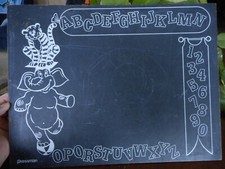 ABCDEFGHIJKLMN
1
2
3
4
5
6
7
8
9
0
OPQRSTUVWXYZ